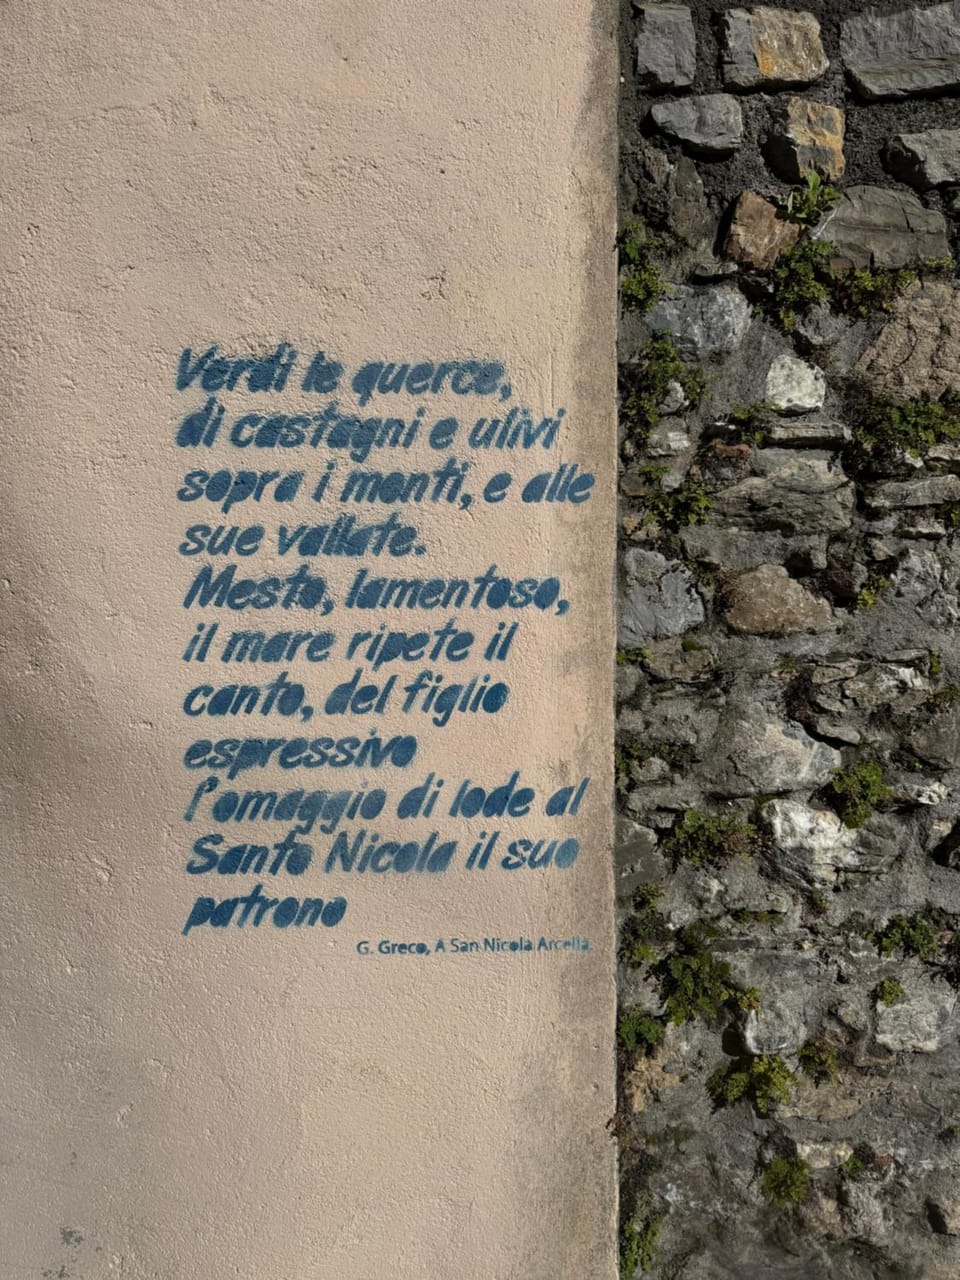 Verdi le querce,
di castagni e ulivi
sopra i monti, e alle
sue vallate.
Mesto, lamentoso,
il mare ripete il
canto, del figlio
espressivo
l'omaggio di lode al
Santo Nicola il suo
patrono
G. Greco, A San Nicola Arcella.